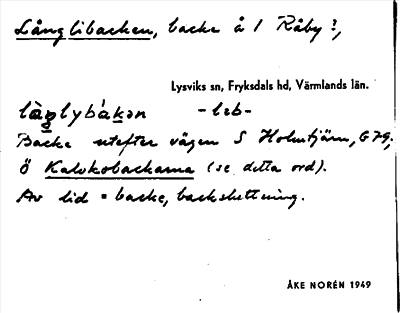 Långlibacken, backe å 1 Råby?,
Lysviks sn, Fryksdals hd, Värmlands län.
làŋlybákən -leb-
Backe utefter vägen S Holmtjärn, G79;
Ö Kalvkobackarna (se detta ord).
Av lid = backe, backsluttning.
ÅKE NORÉN 1949